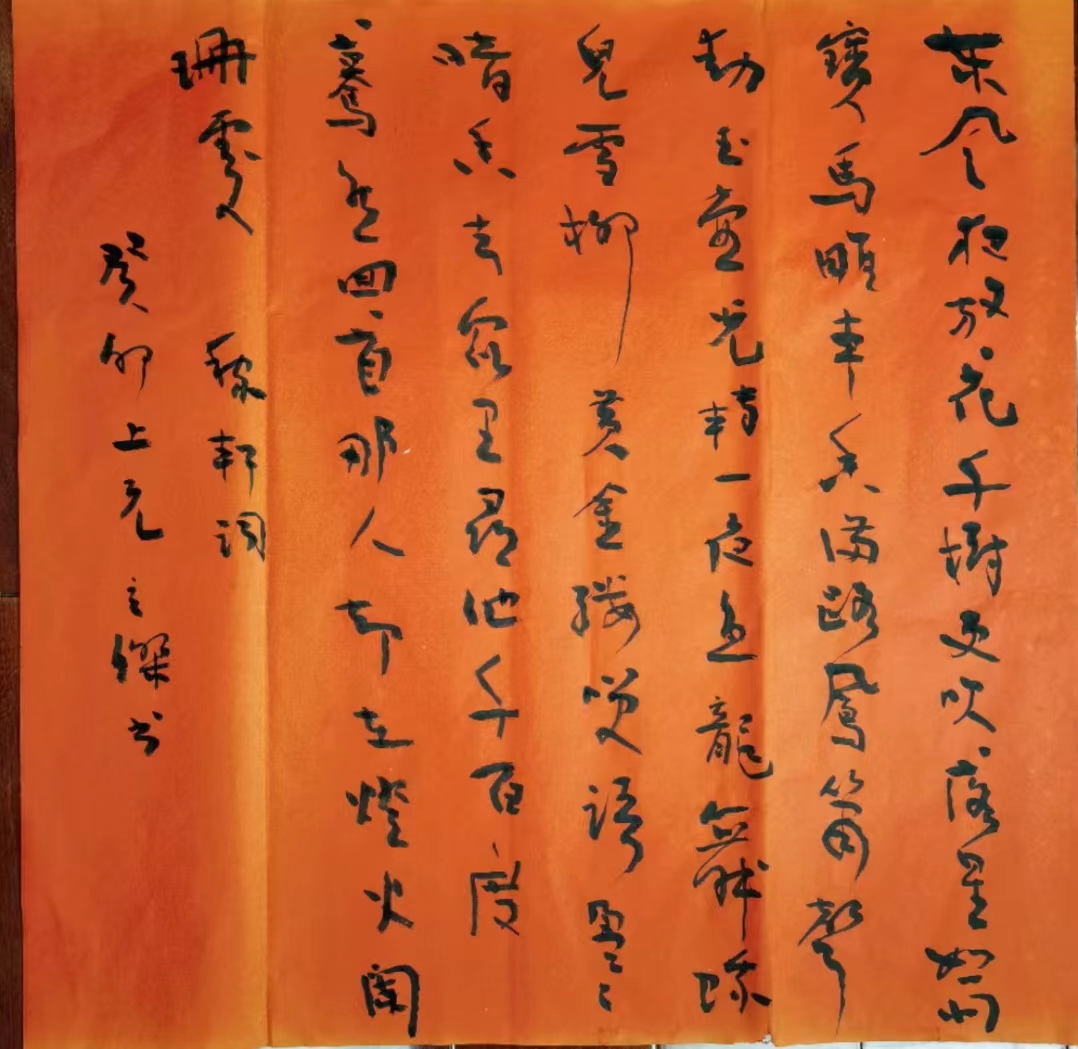 東风夜放花千樹更吹落星如雨
寶馬雕車香滿路鳳簫聲
動玉壺光轉一夜魚龍舞蛾
兒雪柳黃金縷咲語盈〻
暗香去衆里尋他千百度
驀然回首那人却在燈火闌
珊處 稼軒詞
癸卯上元之傑书